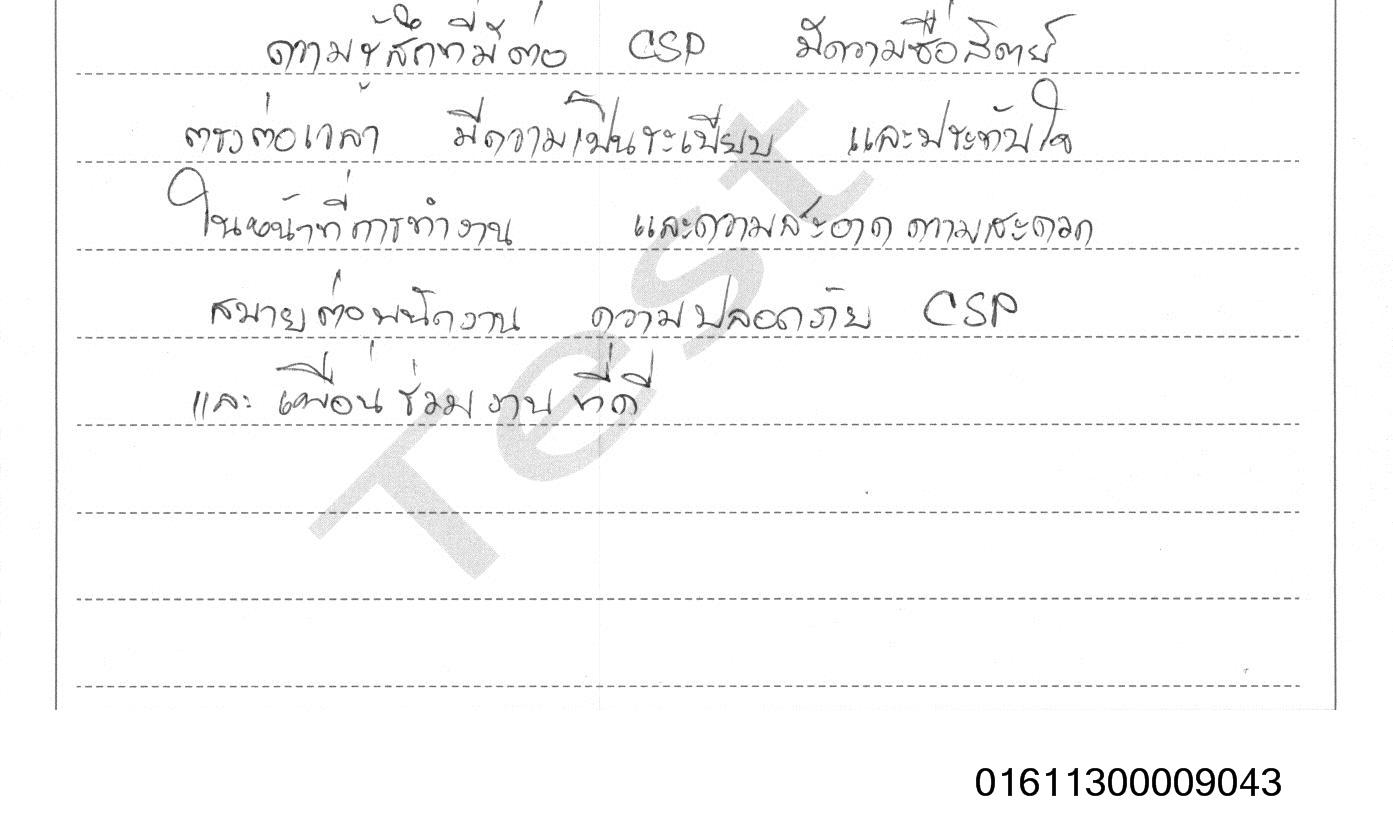 ความรู้สึกที่มีต่อ CSP มีความซื่อสัตย์
ตรงต่อเวลา มีความเป็นระเบียบ และประทับใจ
ในหน้าที่การทำงาน และความสะอาด ความสะดวก
สบายต่อพนักงาน ความปลอดภัย CSP
และ เพื่อนร่วมงานที่ดี
Test
01611300009043